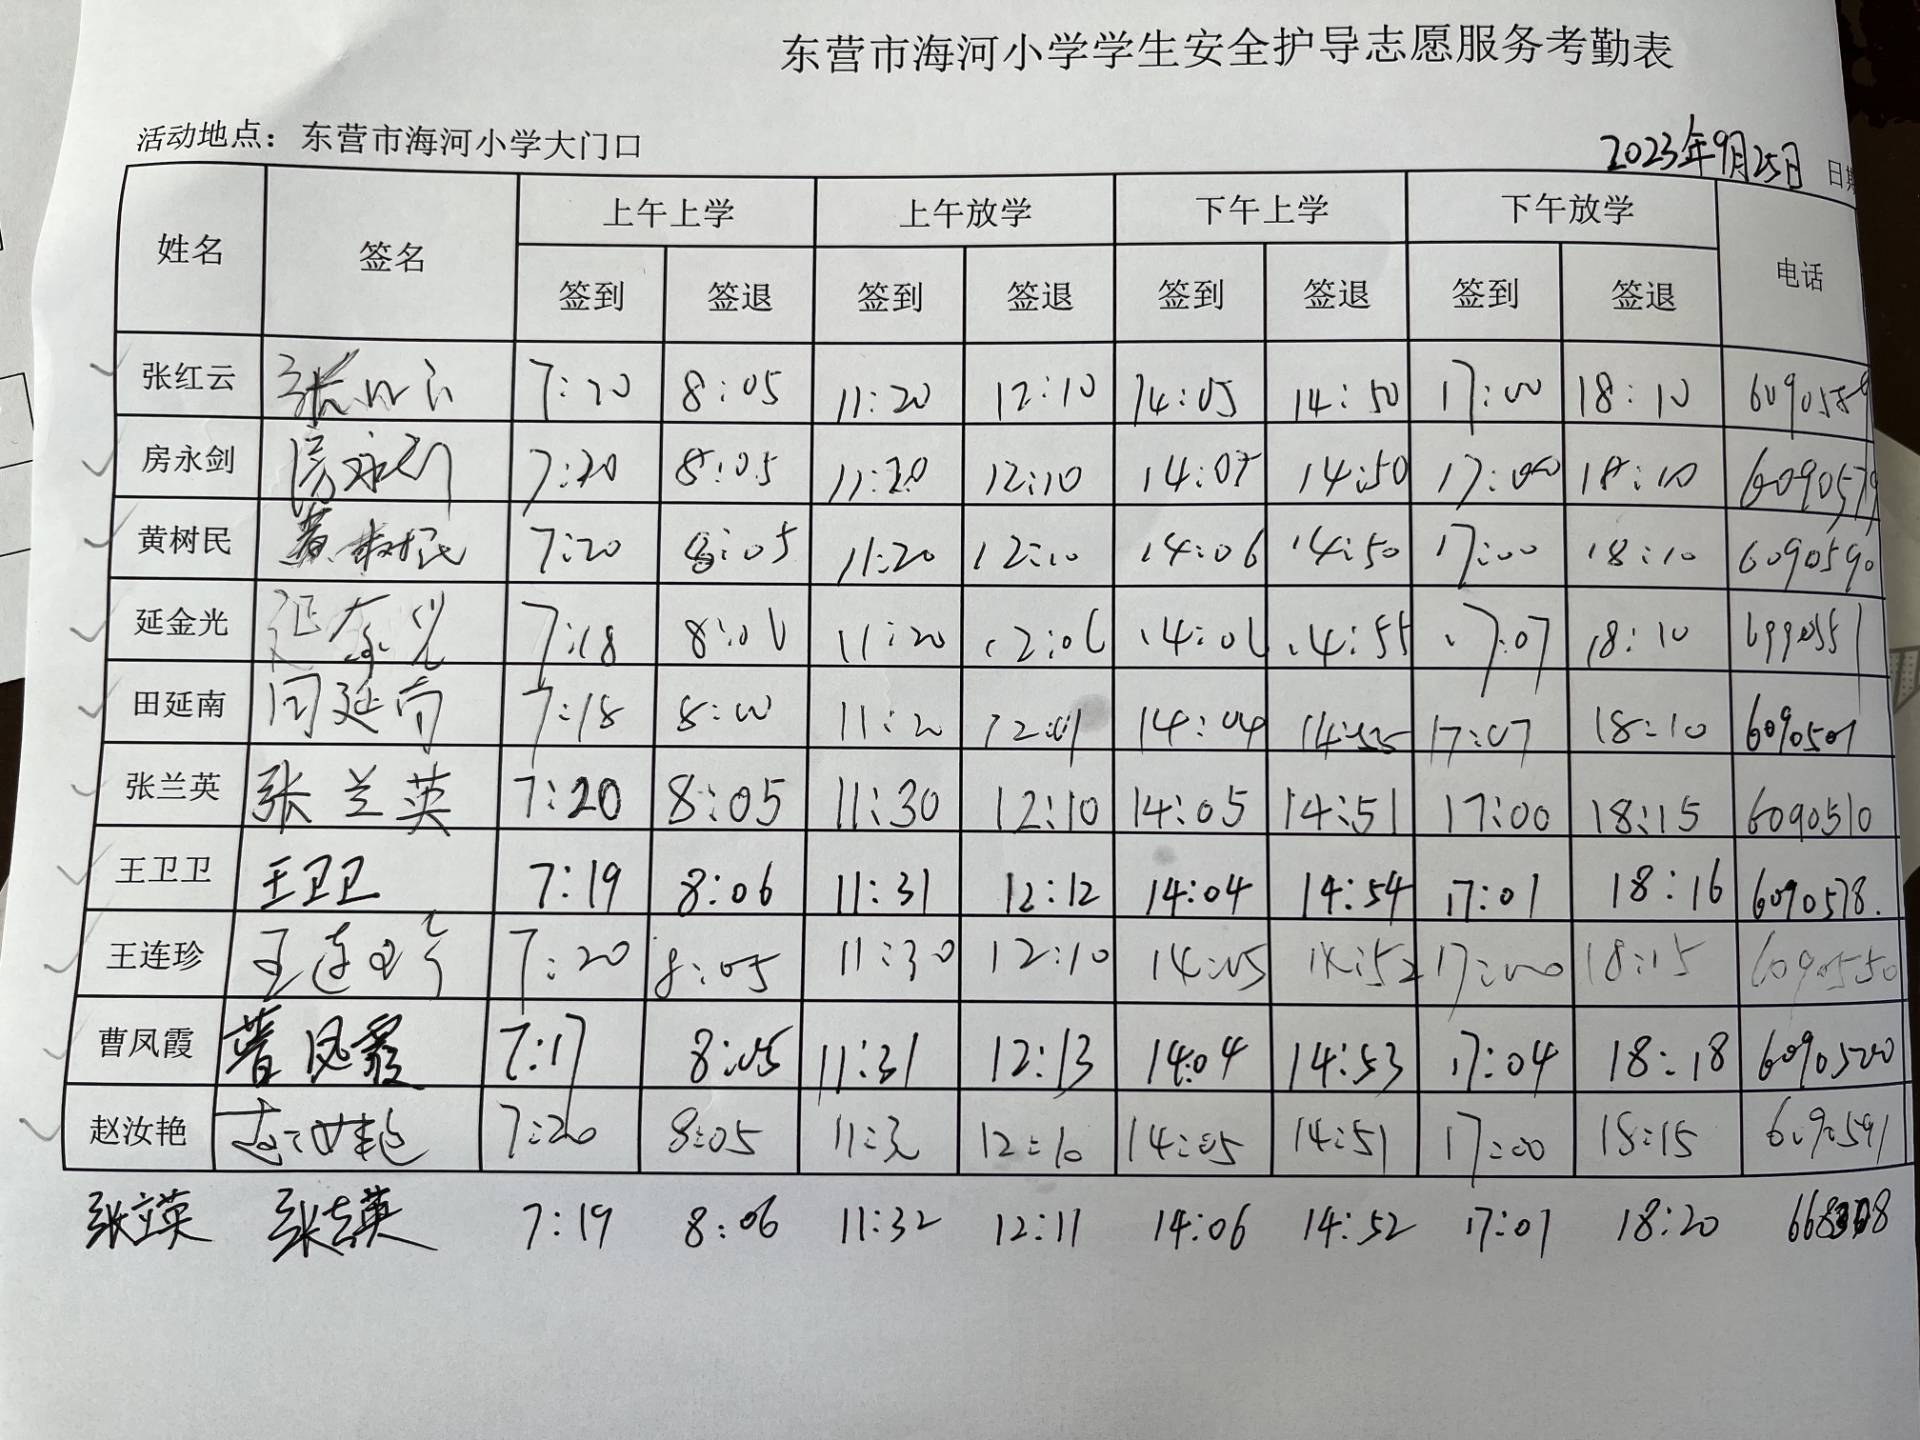 东营市海河小学学生安全护导志愿服务考勤表
活动地点：东营市海河小学大门口
2023年9月25日 日期
姓名 签名 上午上学 上午放学 下午上学 下午放学 电话
签到 签退 签到 签退 签到 签退 签到 签退
张红云 张红云 7:20 8:05 11:20 12:10 14:05 14:50 17:00 18:10
房永剑 房永剑 7:20 8:05 11:20 12:10 14:05 14:50 17:00 18:10 6090579
黄树民 黄树民 7:20 8:05 11:20 12:10 14:06 14:50 17:00 18:10 6090590
延金光 延金光 7:18 8:06 11:20 12:06 14:06 14:55 17:07 18:10
田延南 田延南 7:18 8:00 11:20 12:01 14:04 14:55 17:07 18:10 6090501
张兰英 张兰英 7:20 8:05 11:30 12:10 14:05 14:51 17:00 18:15 6090510
王卫卫 王卫卫 7:19 8:06 11:31 12:12 14:04 14:54 17:01 18:16 6090578.
王连珍 王连珍 7:20 8:05 11:30 12:10 14:05 14:52 17:00 18:15 6090550
曹凤霞 曹凤霞 7:17 8:05 11:31 12:13 14:04 14:53 17:04 18:18 6090520
赵汝艳 赵汝艳 7:20 8:05 11:30 12:10 14:05 14:51 17:00 18:15 6090591
张立英 7:19 8:06 11:32 12:11 14:06 14:52 17:01 18:20